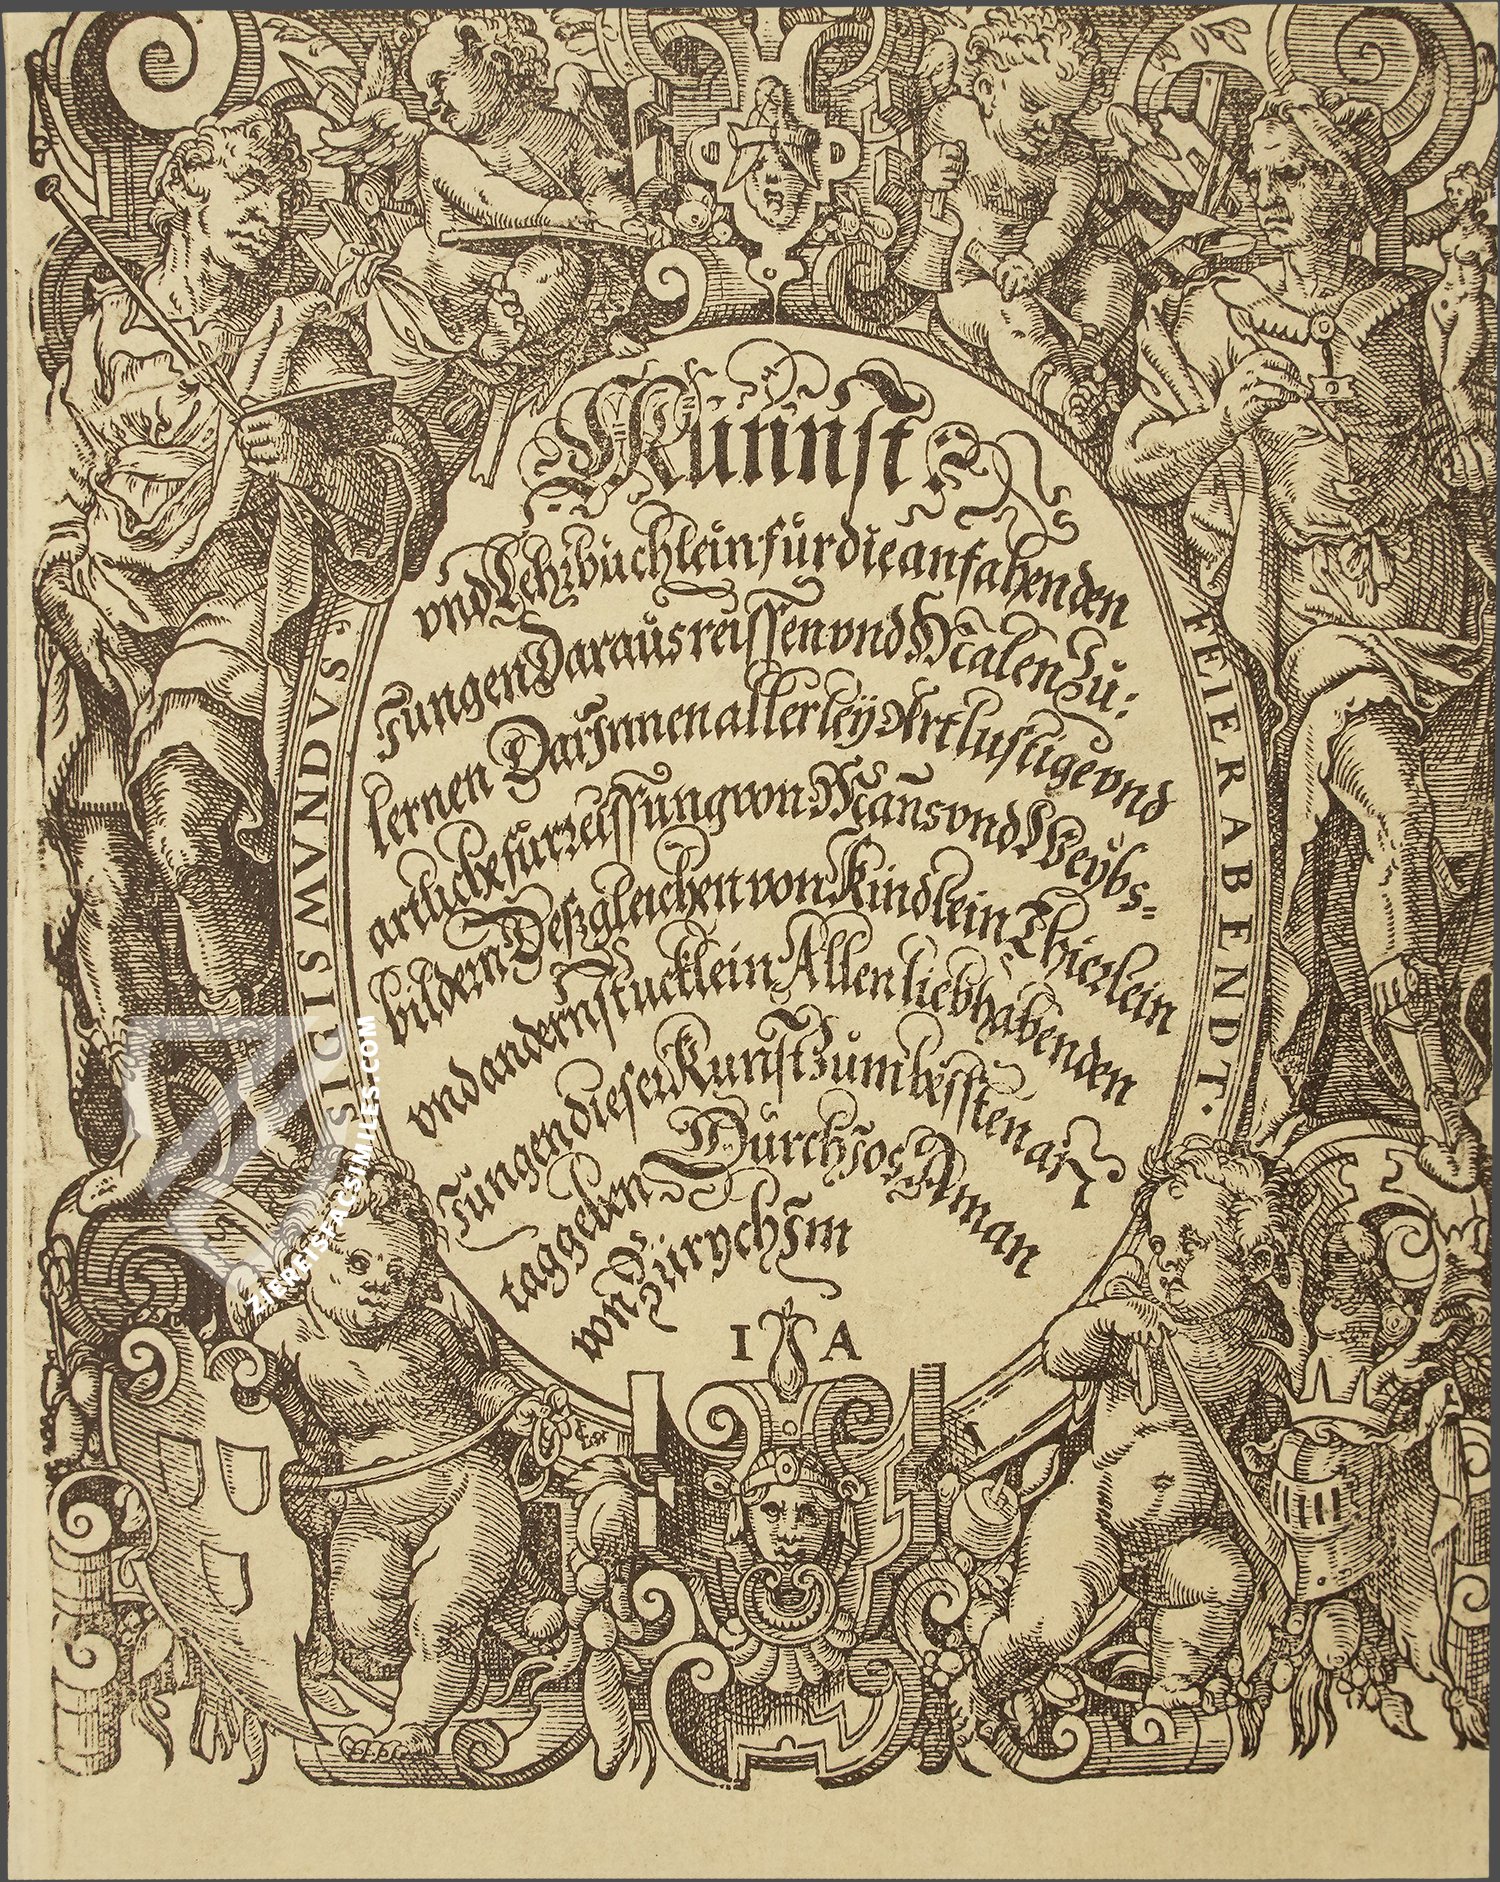 Kunnst
vnd Lehrbüchlein für die anfahenden
Jungen Daraus reissen vnd Malen Zu:
lernen Darjnnen allerley Art lustige vnd
artliche fürreissung von Mans vnd Weybs=
bildern Deßgleichen von Kindlein Thierlein
vnd andern stücklein Allen liebhabenden
Jungen dieser Kunst zum besten an
tag geben Dürch Jos Aman
von Zürych Jm
I A
SIGISMVNDVS
FEIERABENDT.
ZIEREISFACSIMILES.COM